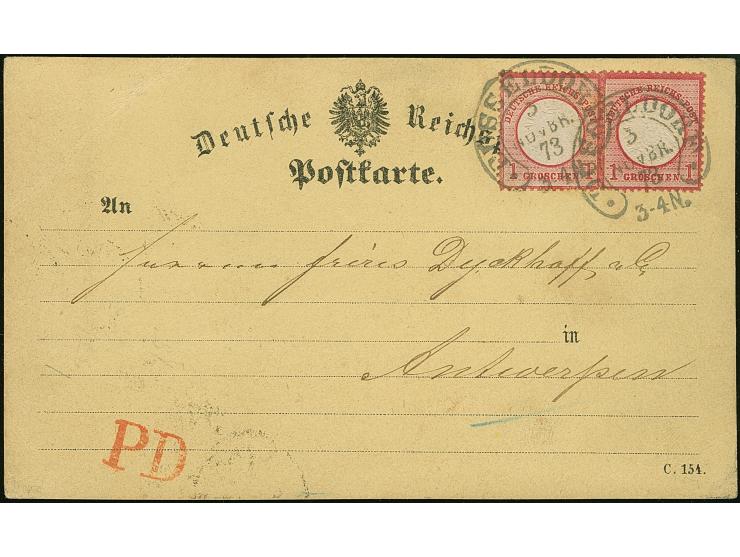 Deutsche Reichs
Postkarte.
DEUTSCHE REICHS-POST
1 GROSCHEN 1
DEUTSCHE REICHS-POST
1 GROSCHEN 1
DÜSSELDORF
3
NOVBR.
73
3
NOVBR.
73
3-4N.
An
Herren frères Dyckhoff & C.
in
Antwerpen
PD
C. 154.